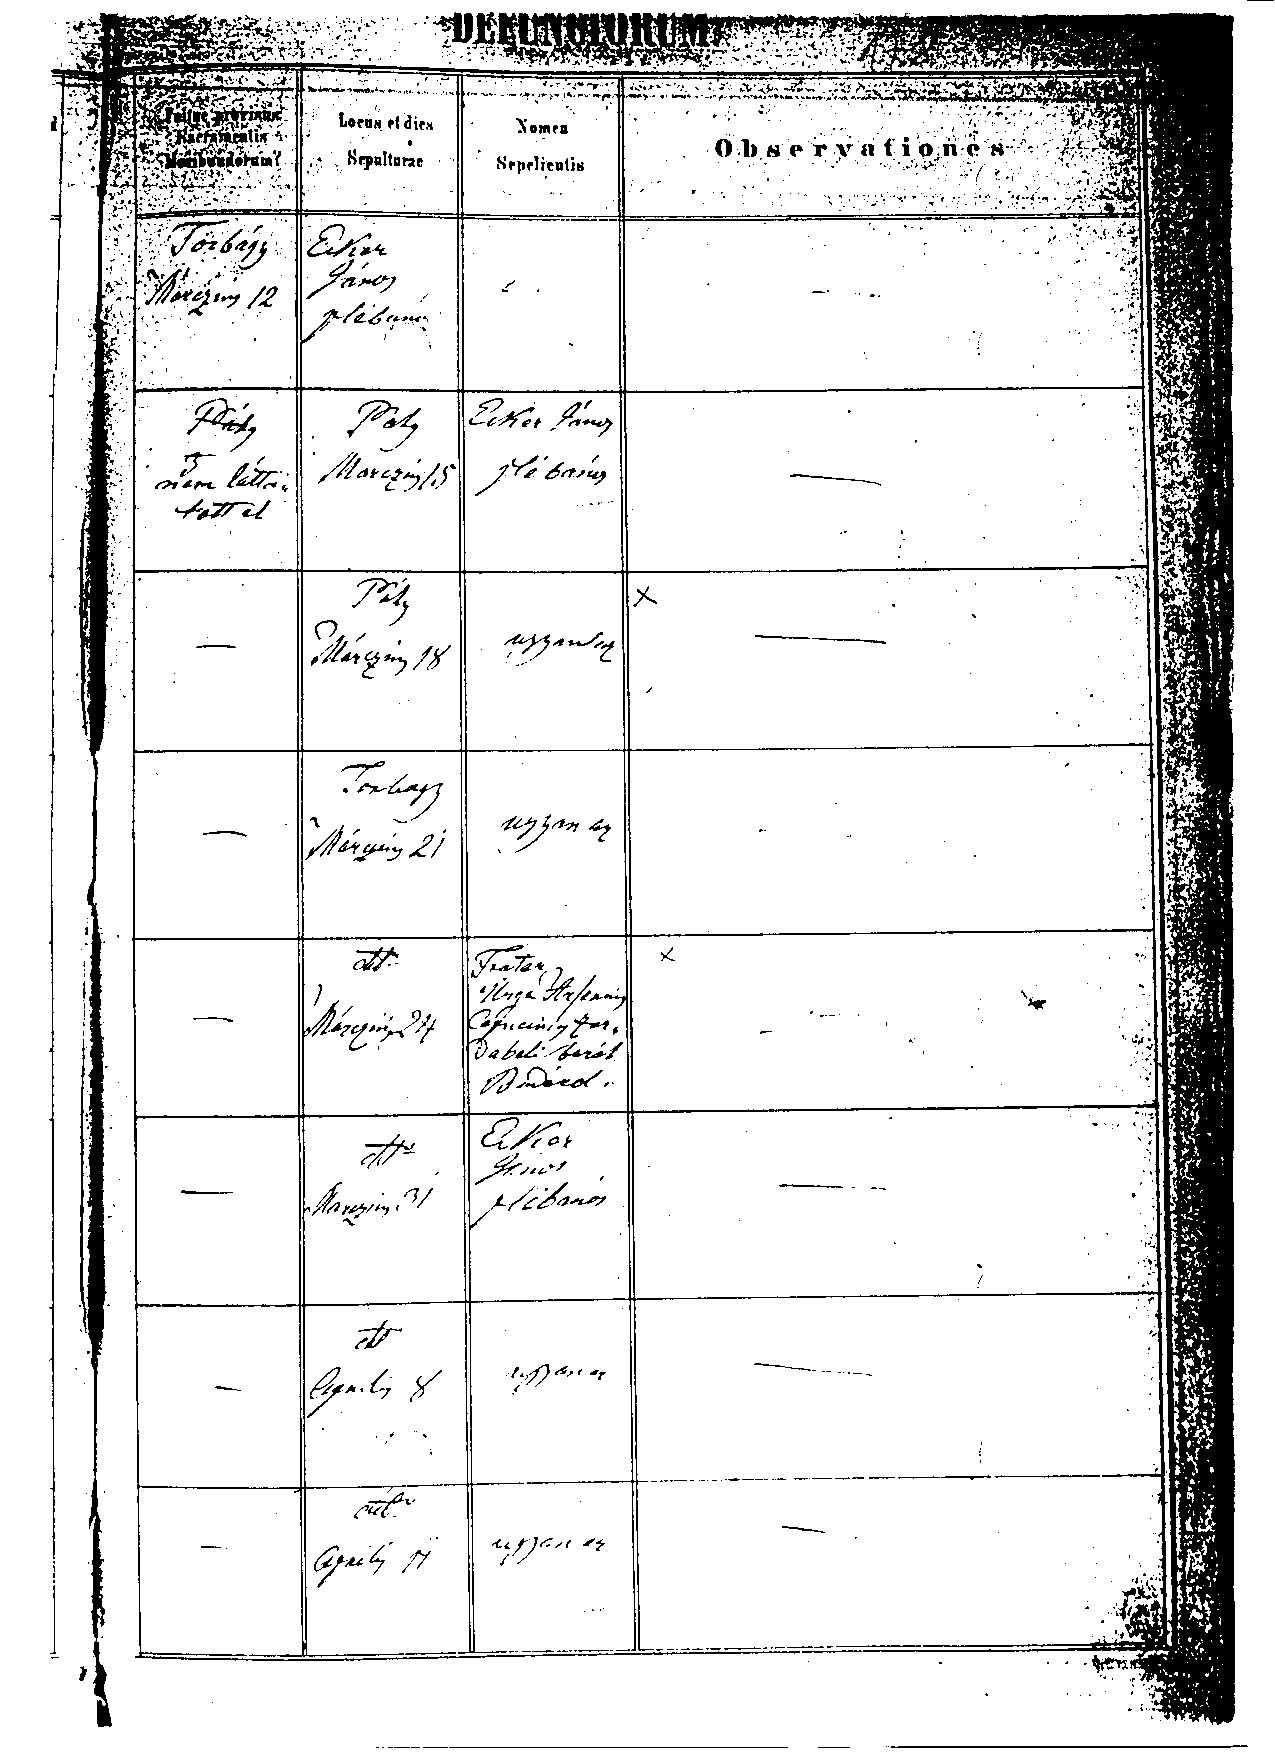 DEFUNCTORUM
Fuitne provisus
Sacramentis
Moribundorum?
Locus et dies
Sepulturae
Nomen
Sepelientis
Observationes
Torbágy
Márczius 12
Ecker
János
plébános
Páty
nem látta-
tott el
Páty
Márczius 15
Ecker János
plébános
Páty
Márczius 18
ugyanaz
Torbágy
Márczius 21
ugyan az
dtt
Márczius 24
Frater
Capucinus
barát
dtt
Márczius 31
Ecker
János
plébános
dtt
Aprilis 8
ugyan az
dtt
Aprilis 11
ugyan az